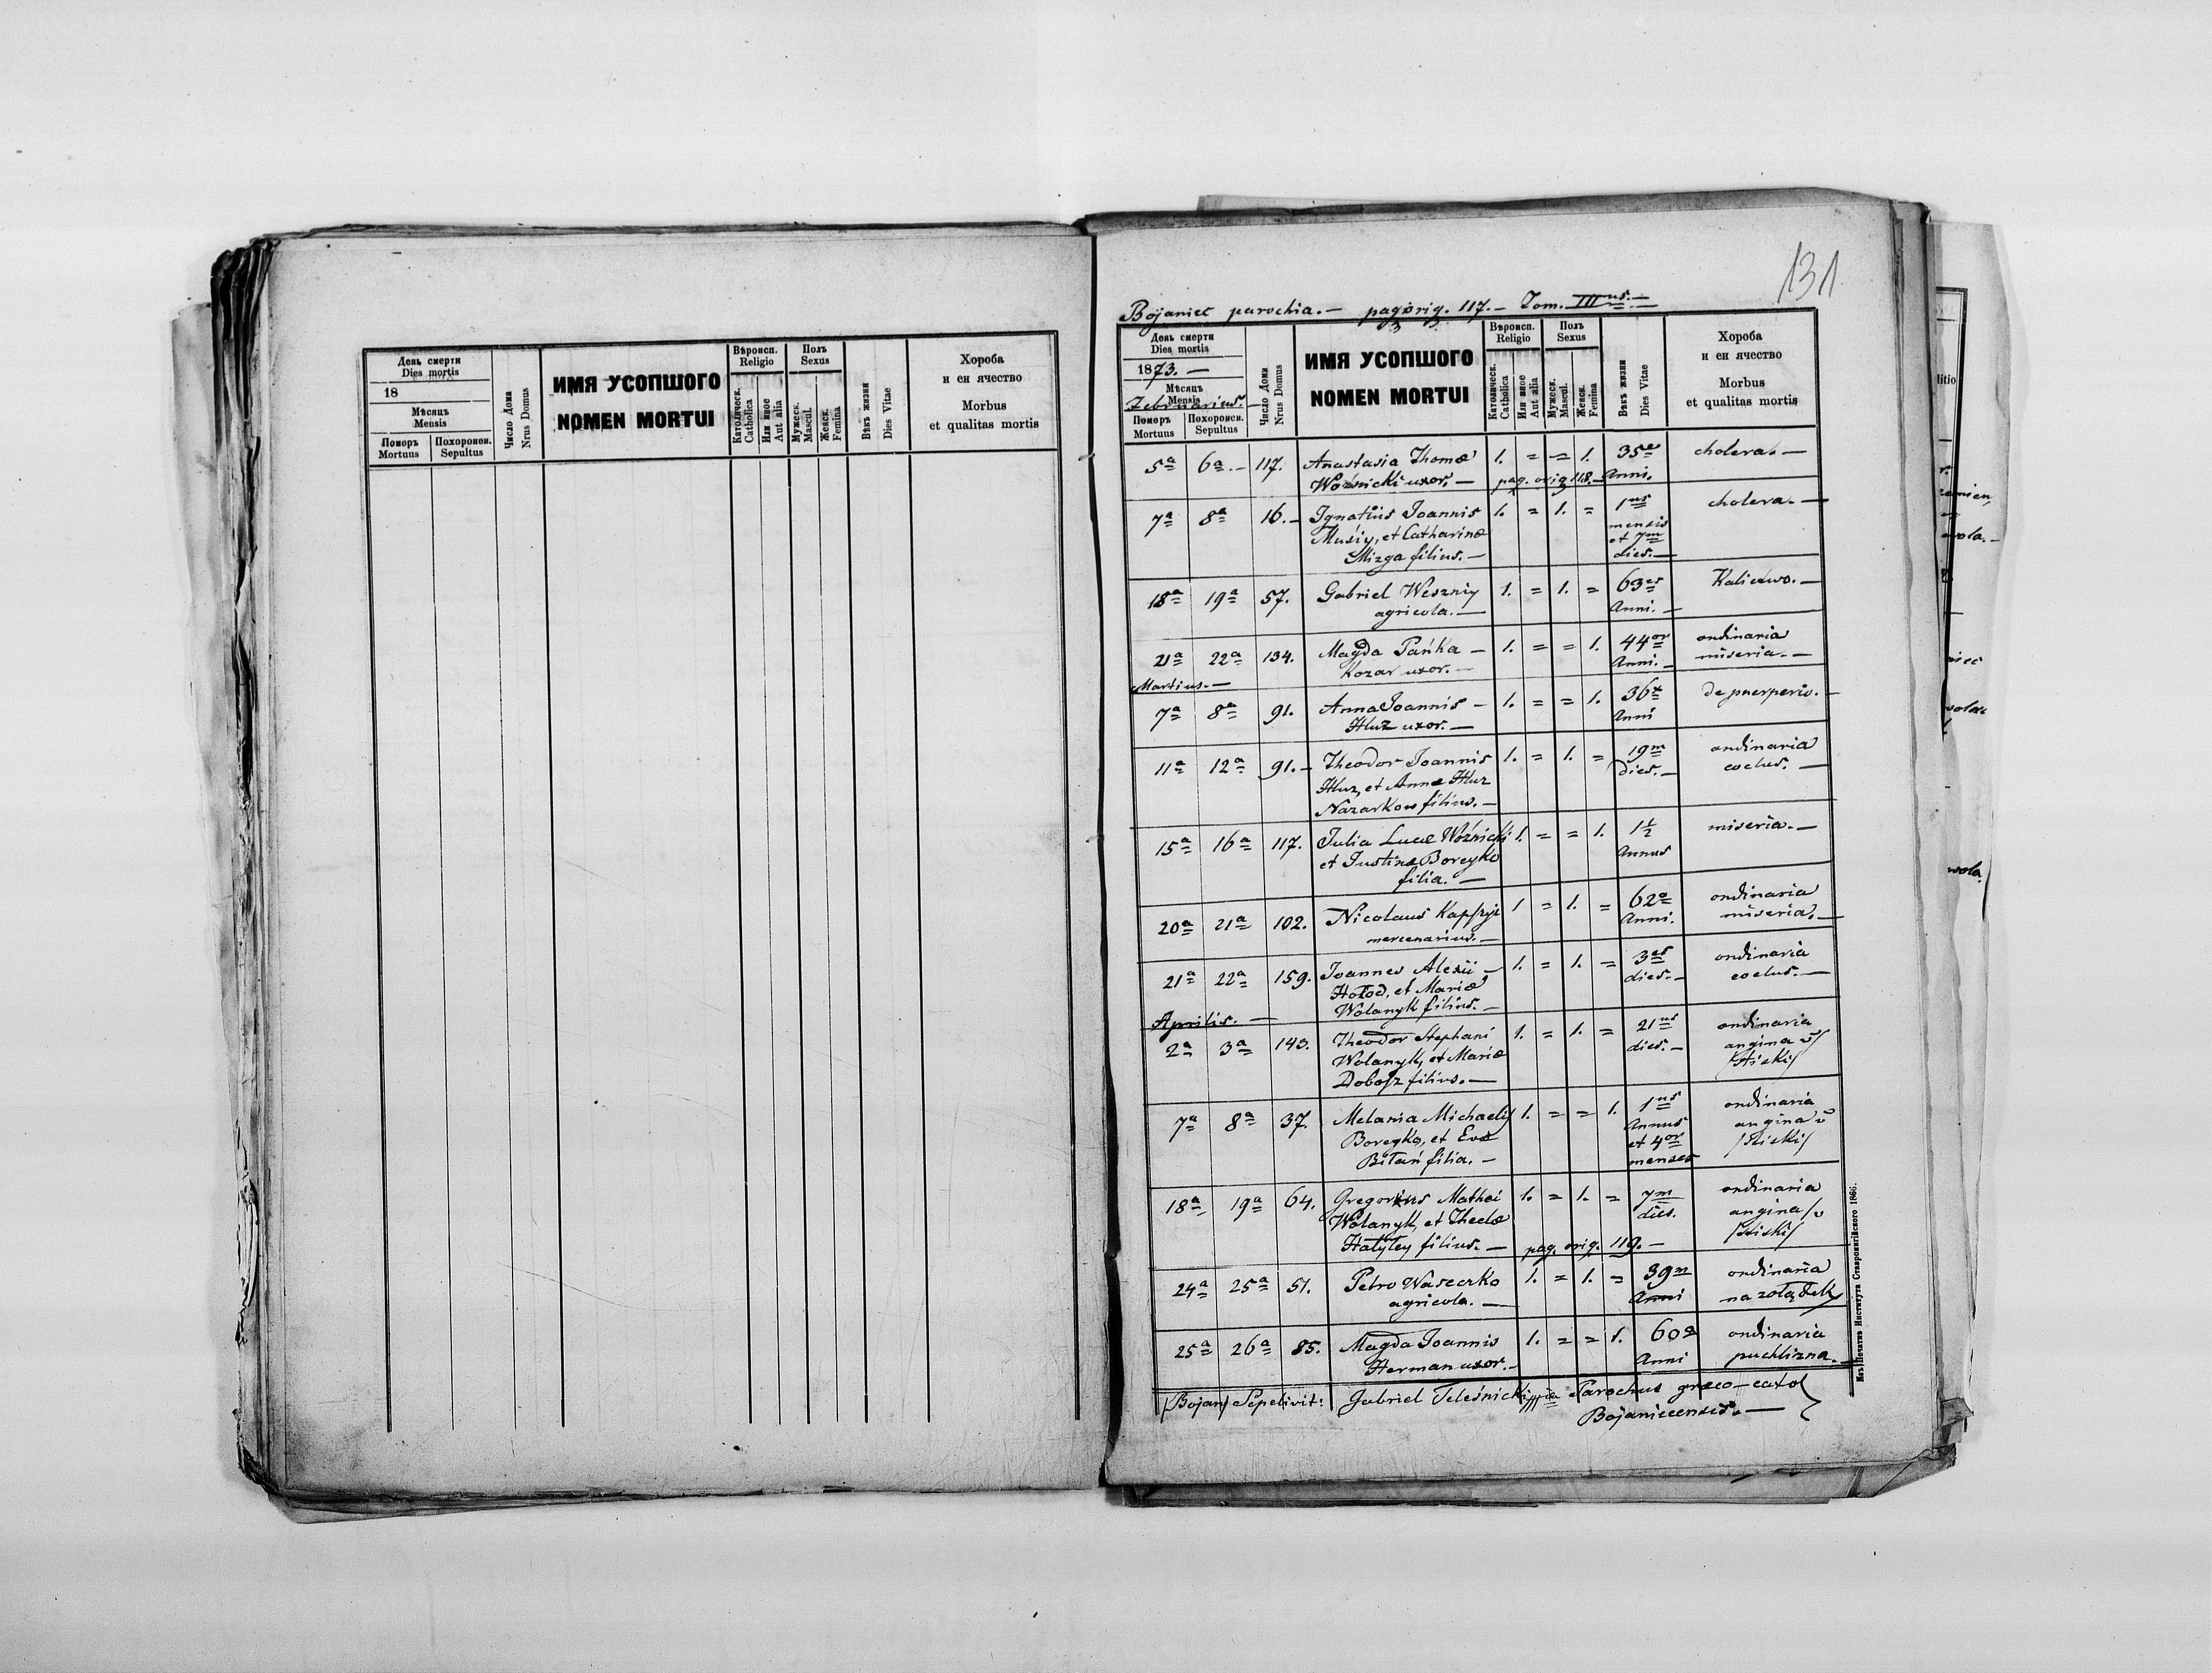 День смерти
Dies mortis
18
Мѣсяцъ
Mensis
Померъ
Mortuus
Похоронен.
Sepultus
Число Дома
Nrus Domus
ИМЯ УСОПШОГО
NOMEN MORTUI
Вѣроисп.
Religio
Католическ.
Catholica
Или иное
Aut alia
Полъ
Sexus
Мужеск.
Mascul.
Женск.
Femina
Вѣкъ жизни
Dies Vitae
Хороба
и еи ячество
Morbus
et qualitas mortis
131
Bojaniec parochia. — pag. orig. 117. — Tom. III us. —
День смерти
Dies mortis
1873. —
Мѣсяцъ
Mensis
Februarius.
Померъ
Mortuus
Похоронен.
Sepultus
Число Дома
Nrus Domus
ИМЯ УСОПШОГО
NOMEN MORTUI
Вѣроисп.
Religio
Католическ.
Catholica
Или иное
Aut alia
Полъ
Sexus
Мужеск.
Mascul.
Женск.
Femina
Вѣкъ жизни
Dies Vitae
Хороба
и еи ячество
Morbus
et qualitas mortis
5a 6a. — 117. Anastasia Thomæ 1. = = 1. 35e cholera. —
Woźnicki uxor. — pag. orig 118. — Anni.
7a 8a 16. — Ignatius Joannis 1. = 1. = 1us cholera. —
Musiy, et Catharinæ mensis
Mizga filius. — et 7m
dies. —
18a 19a 57. Gabriel Weszniy 1. = 1. = 63es
agricola. — Anni. —
21a 22a 134. Magda Pańka — 1. = = 1. 44or ordinaria
Kozar uxor. — Anni. — miseria. —
Martius. —
7a 8a 91. Anna Joannis — 1. = = 1. 36x de puerperio. —
Huz uxor. — Anni
11a 12a 91. — Theodor Joannis 1. = 1. = 19m ordinaria
Huz, et Annæ Huz dies. — coelus. —
Nazarkow filius. —
15a 16a 117. Julia Lucæ Woźnicki 1. = = 1. 1½ miseria. —
et Justinæ Boreyko Annus
filia. —
20a 21a 102. Nicolaus 1 = 1. = 62a ordinaria
mercenarius. — Anni. miseria. —
21a 22a 159. Joannes Alexii — 1. = 1. = 3es ordinaria
Hołod, et Mariæ dies. — coelus. —
Wolanyk filius. —
Aprilis. —
2a 3a 143. Theodor Stephani 1. = 1. = 21us ordinaria
Wolanyk, et Mariæ dies. — angina
Dobosz filius. —
7a 8a 37. Melania Michaelis 1. = = 1. 1us ordinaria
Boreyko, et Evæ Annus angina
Biłań filia. — et 4or
menses
18a 19a 64. Gregorius Mathei 1. = 1. = 7m ordinaria
Wolanyk, et Theclæ dies. angina
Hałyłey filius. — pag. orig. 119. —
24a 25a 51. Petro Waseczko 1. = 1. = 39m ordinaria
agricola. — Anni na zołądek
25a 26a 85. Magda Joannis 1. = = 1. 60a ordinaria
Herman uxor. — Anni puchlizna. —
Sepelivit: Gabriel Teleśnicki Parochus græco-catol
Bojanicensis. —
Изъ Печатнѣ Института Ставропигійского 1866.